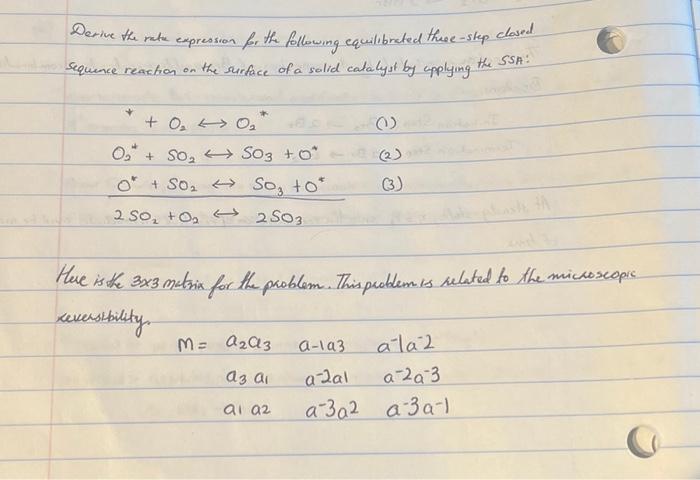 Derive the rate expression for the following equilibrated three-step closed
sequence reaction on the surface of a solid catalyst by applying the SSA:
* + O₂ ↔ O₂* (1)
O₂* + SO₂ ↔ SO₃ + O* (2)
O* + SO₂ ↔ SO₃ + O* (3)
2SO₂ + O₂ ↔ 2SO₃
Here is the 3x3 matrix for the problem. This problem is related to the microscopic
reversibility.
M= a₂a₃ a-1a3 a⁻1a⁻2
a₃ a₁ a⁻2a1 a⁻2a⁻3
a₁ a2 a⁻3a2 a⁻3a⁻1